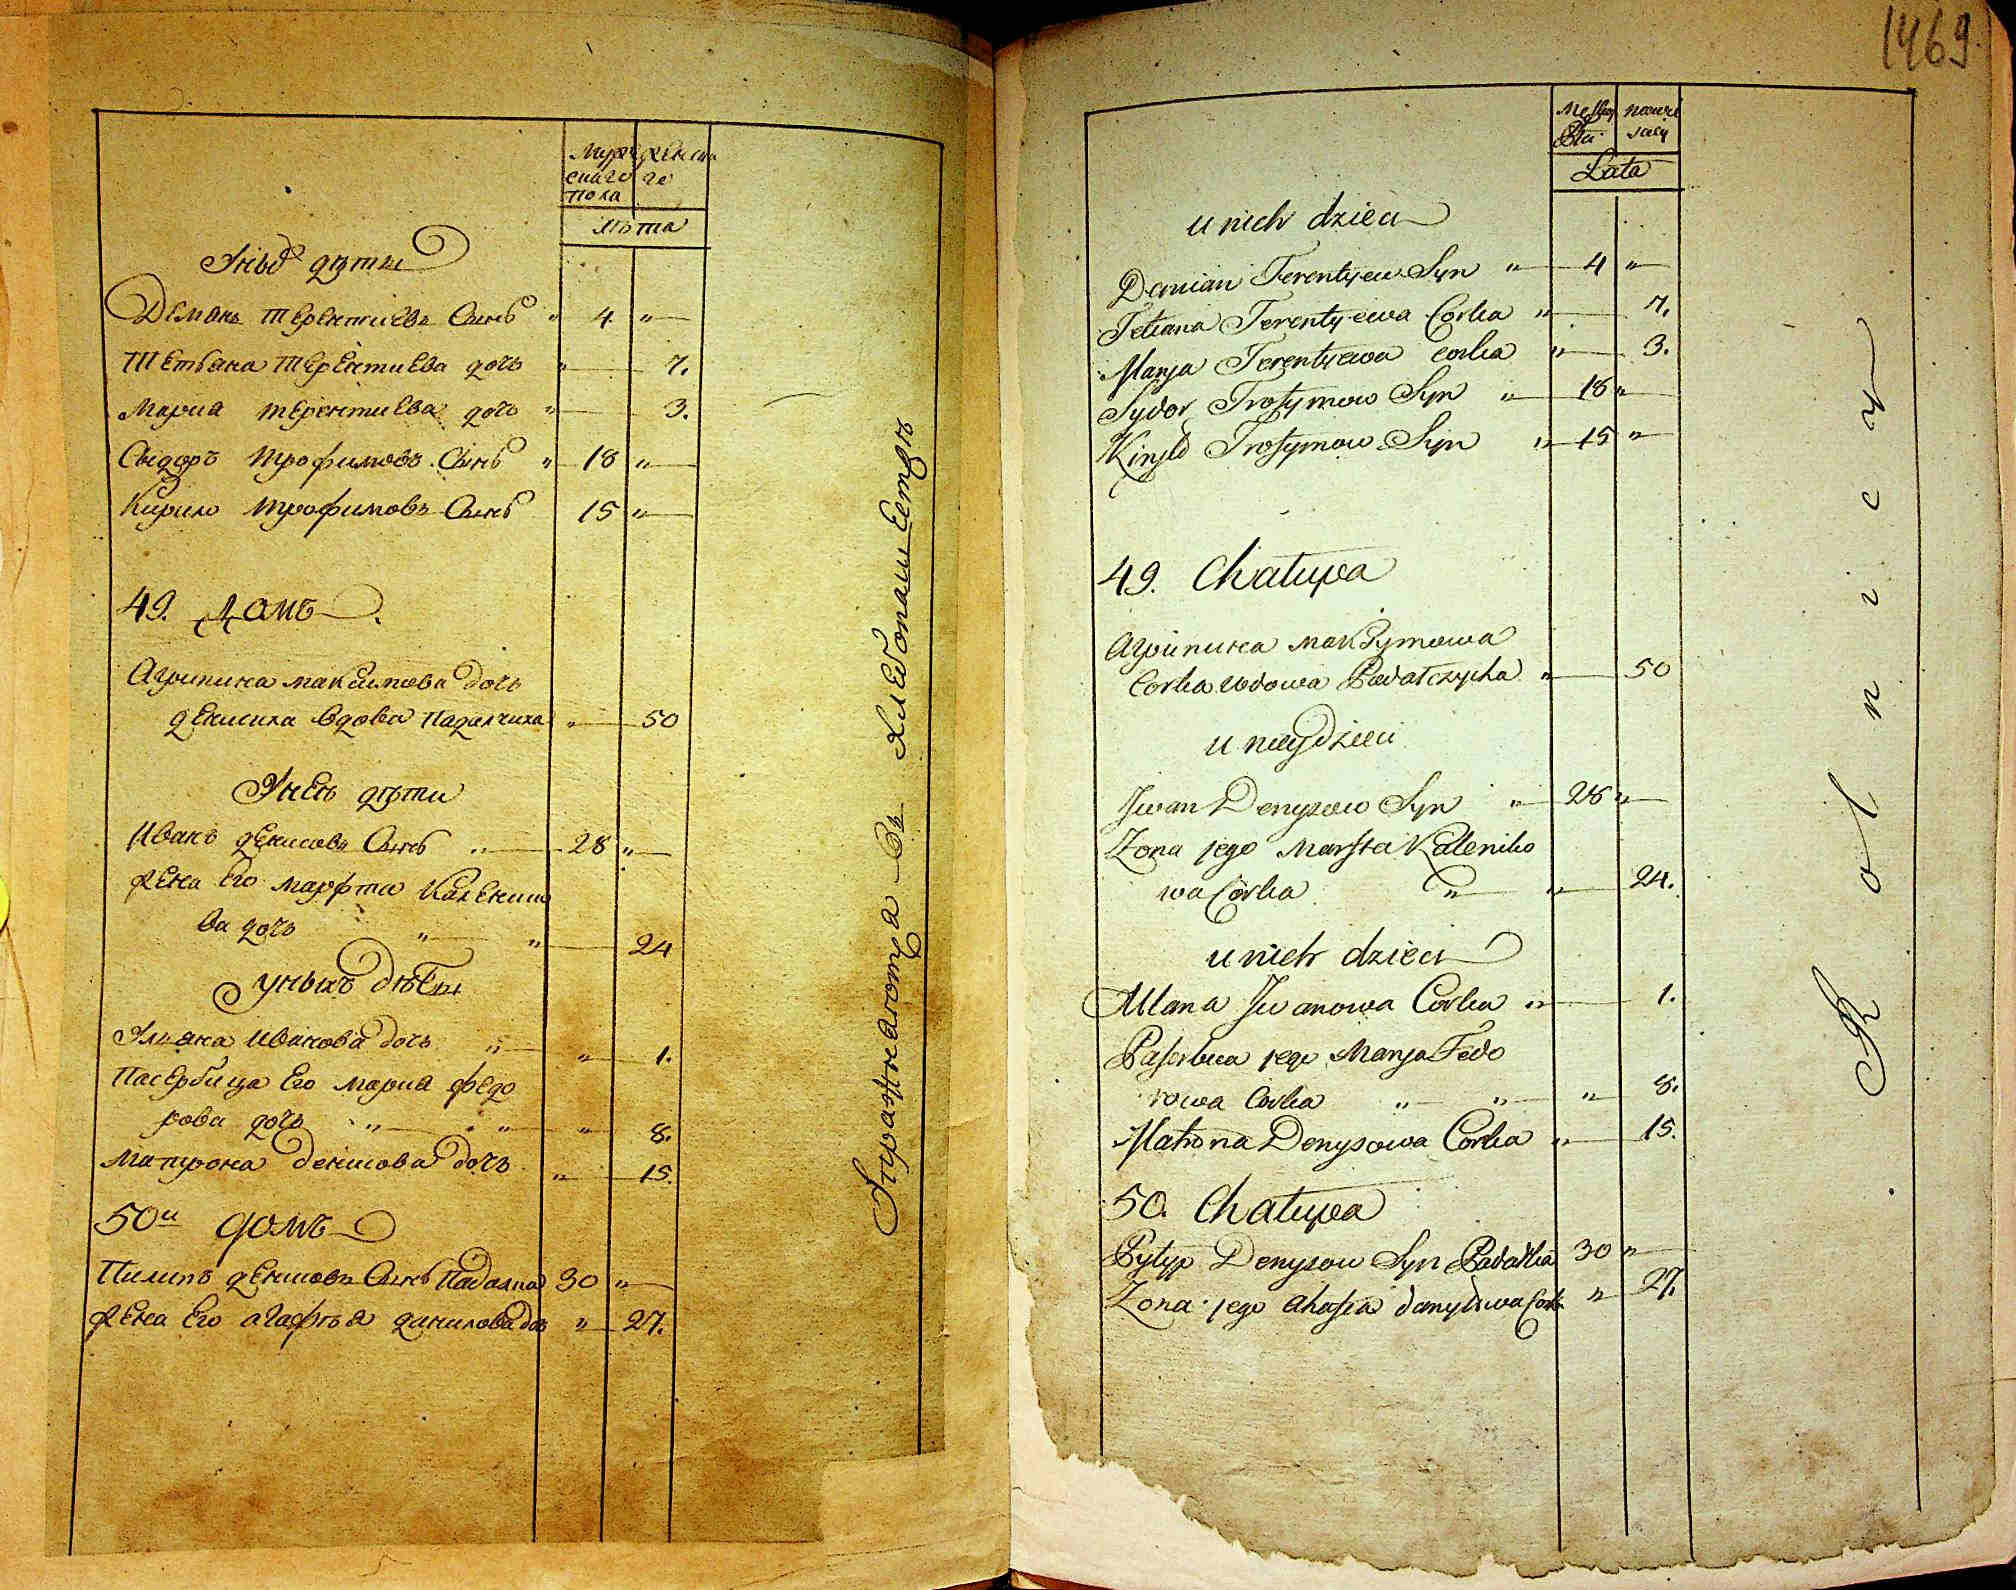 мужескаго пола
женска го
лѣта
У нихъ дѣти
Демянъ Терентиевъ Сынъ " 4 "
Тетьяна Терентиева дочь " 7.
Мариа терентиева дочь " 3.
Сидоръ трофимовъ Сынъ " 18 "
Кирило трофимовъ Сынъ 15 "
49. домъ.
Агрипина максимова дочь
денисиха вдова Падалчиха " 50
У неи дѣти
Иванъ денисовъ Сынъ " 28 "
жена Его марфта Каленико
ва дочь " " 24
у нихъ дѣти
Ульяна Иванова дочь " " 1.
Пасербица Его мариа федо
рова дочь " " " 8.
Матрона денисова дочь " 15.
50й домъ
Пилипъ денисовъ Сынъ Падалка 30 "
жена Его агафья данилова дочь " 27.
Упражнаютца въ хлебопашестве
1469.
Męskey Płci
Lata
u nich dzieci
Demian Terentyew Syn " 4 "
Tetiana Terentyewa Corka " 7.
Marya Terentyewa corka " 3.
Sydor Trofymow Syn " 18 "
Kiryło Trofymow Syn " 15 "
49. Chałupa
Agripinka maksymowa
Corka wdowa Padałczycha " 50
u niey dzieci
Jwan Denysow Syn " 28 "
Zona jego Marfta Kaleniko
wa Corka " " 24.
u nich dzieci
Ulana Jwanowa Corka " 1.
Pasierbica jego Marya Fedo
rowa Corka " " " 8.
Matrona Denysowa Corka " 15.
50. Chałupa
Pylyp Denysow Syn Padałka 30 "
Zona jego Ahafia danyłowa Cork " 27.
Rolnicy